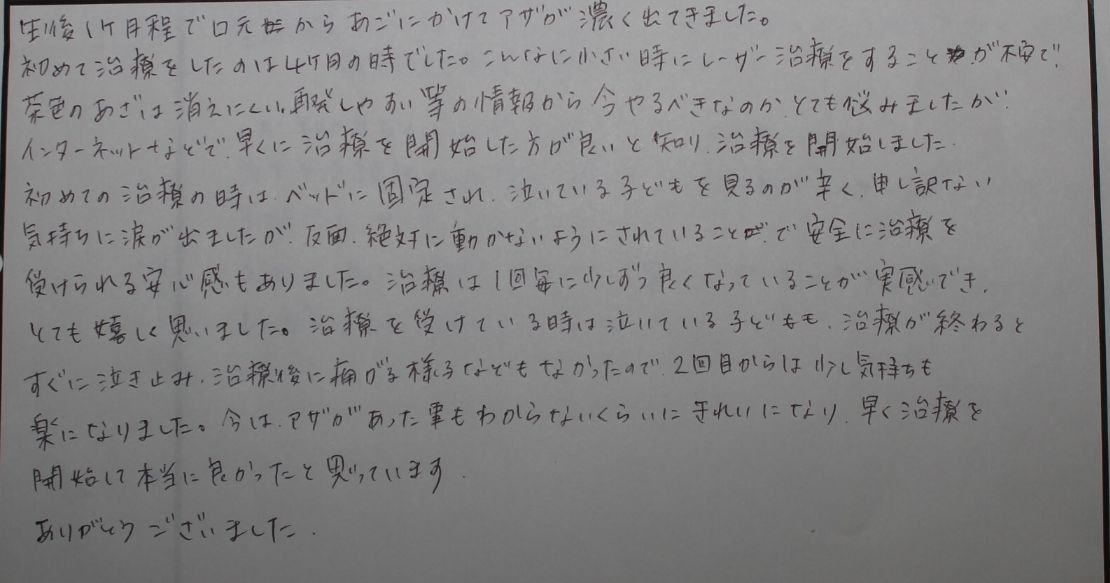 生後1ヶ月程で口元からあごにかけてアザが濃く出てきました。
初めて治療をしたのは4ヶ月の時でした。こんなに小さい時にレーザー治療をすることが不安で、
茶色のあざは消えにくい、再発しやすい等の情報から今やるべきなのかとても悩みましたが、
インターネットなどで、早くに治療を開始した方が良いと知り、治療を開始しました。
初めての治療の時は、ベッドに固定され、泣いている子どもを見るのが辛く、申し訳ない
気持ちに涙が出ましたが、反面、絶対に動かないようにされていることで安全に治療を
受けられる安心感もありました。治療は1回毎に少しずつ良くなっていることが実感でき、
とても嬉しく思いました。治療を受けている時は泣いている子どもも、治療が終わると
すぐに泣き止み、治療後に痛がる様子などもなかったので、2回目からは少し気持ちも
楽になりました。今は、アザがあった事もわからないくらいにきれいになり、早く治療を
開始して本当に良かったと思っています。
ありがとうございました。